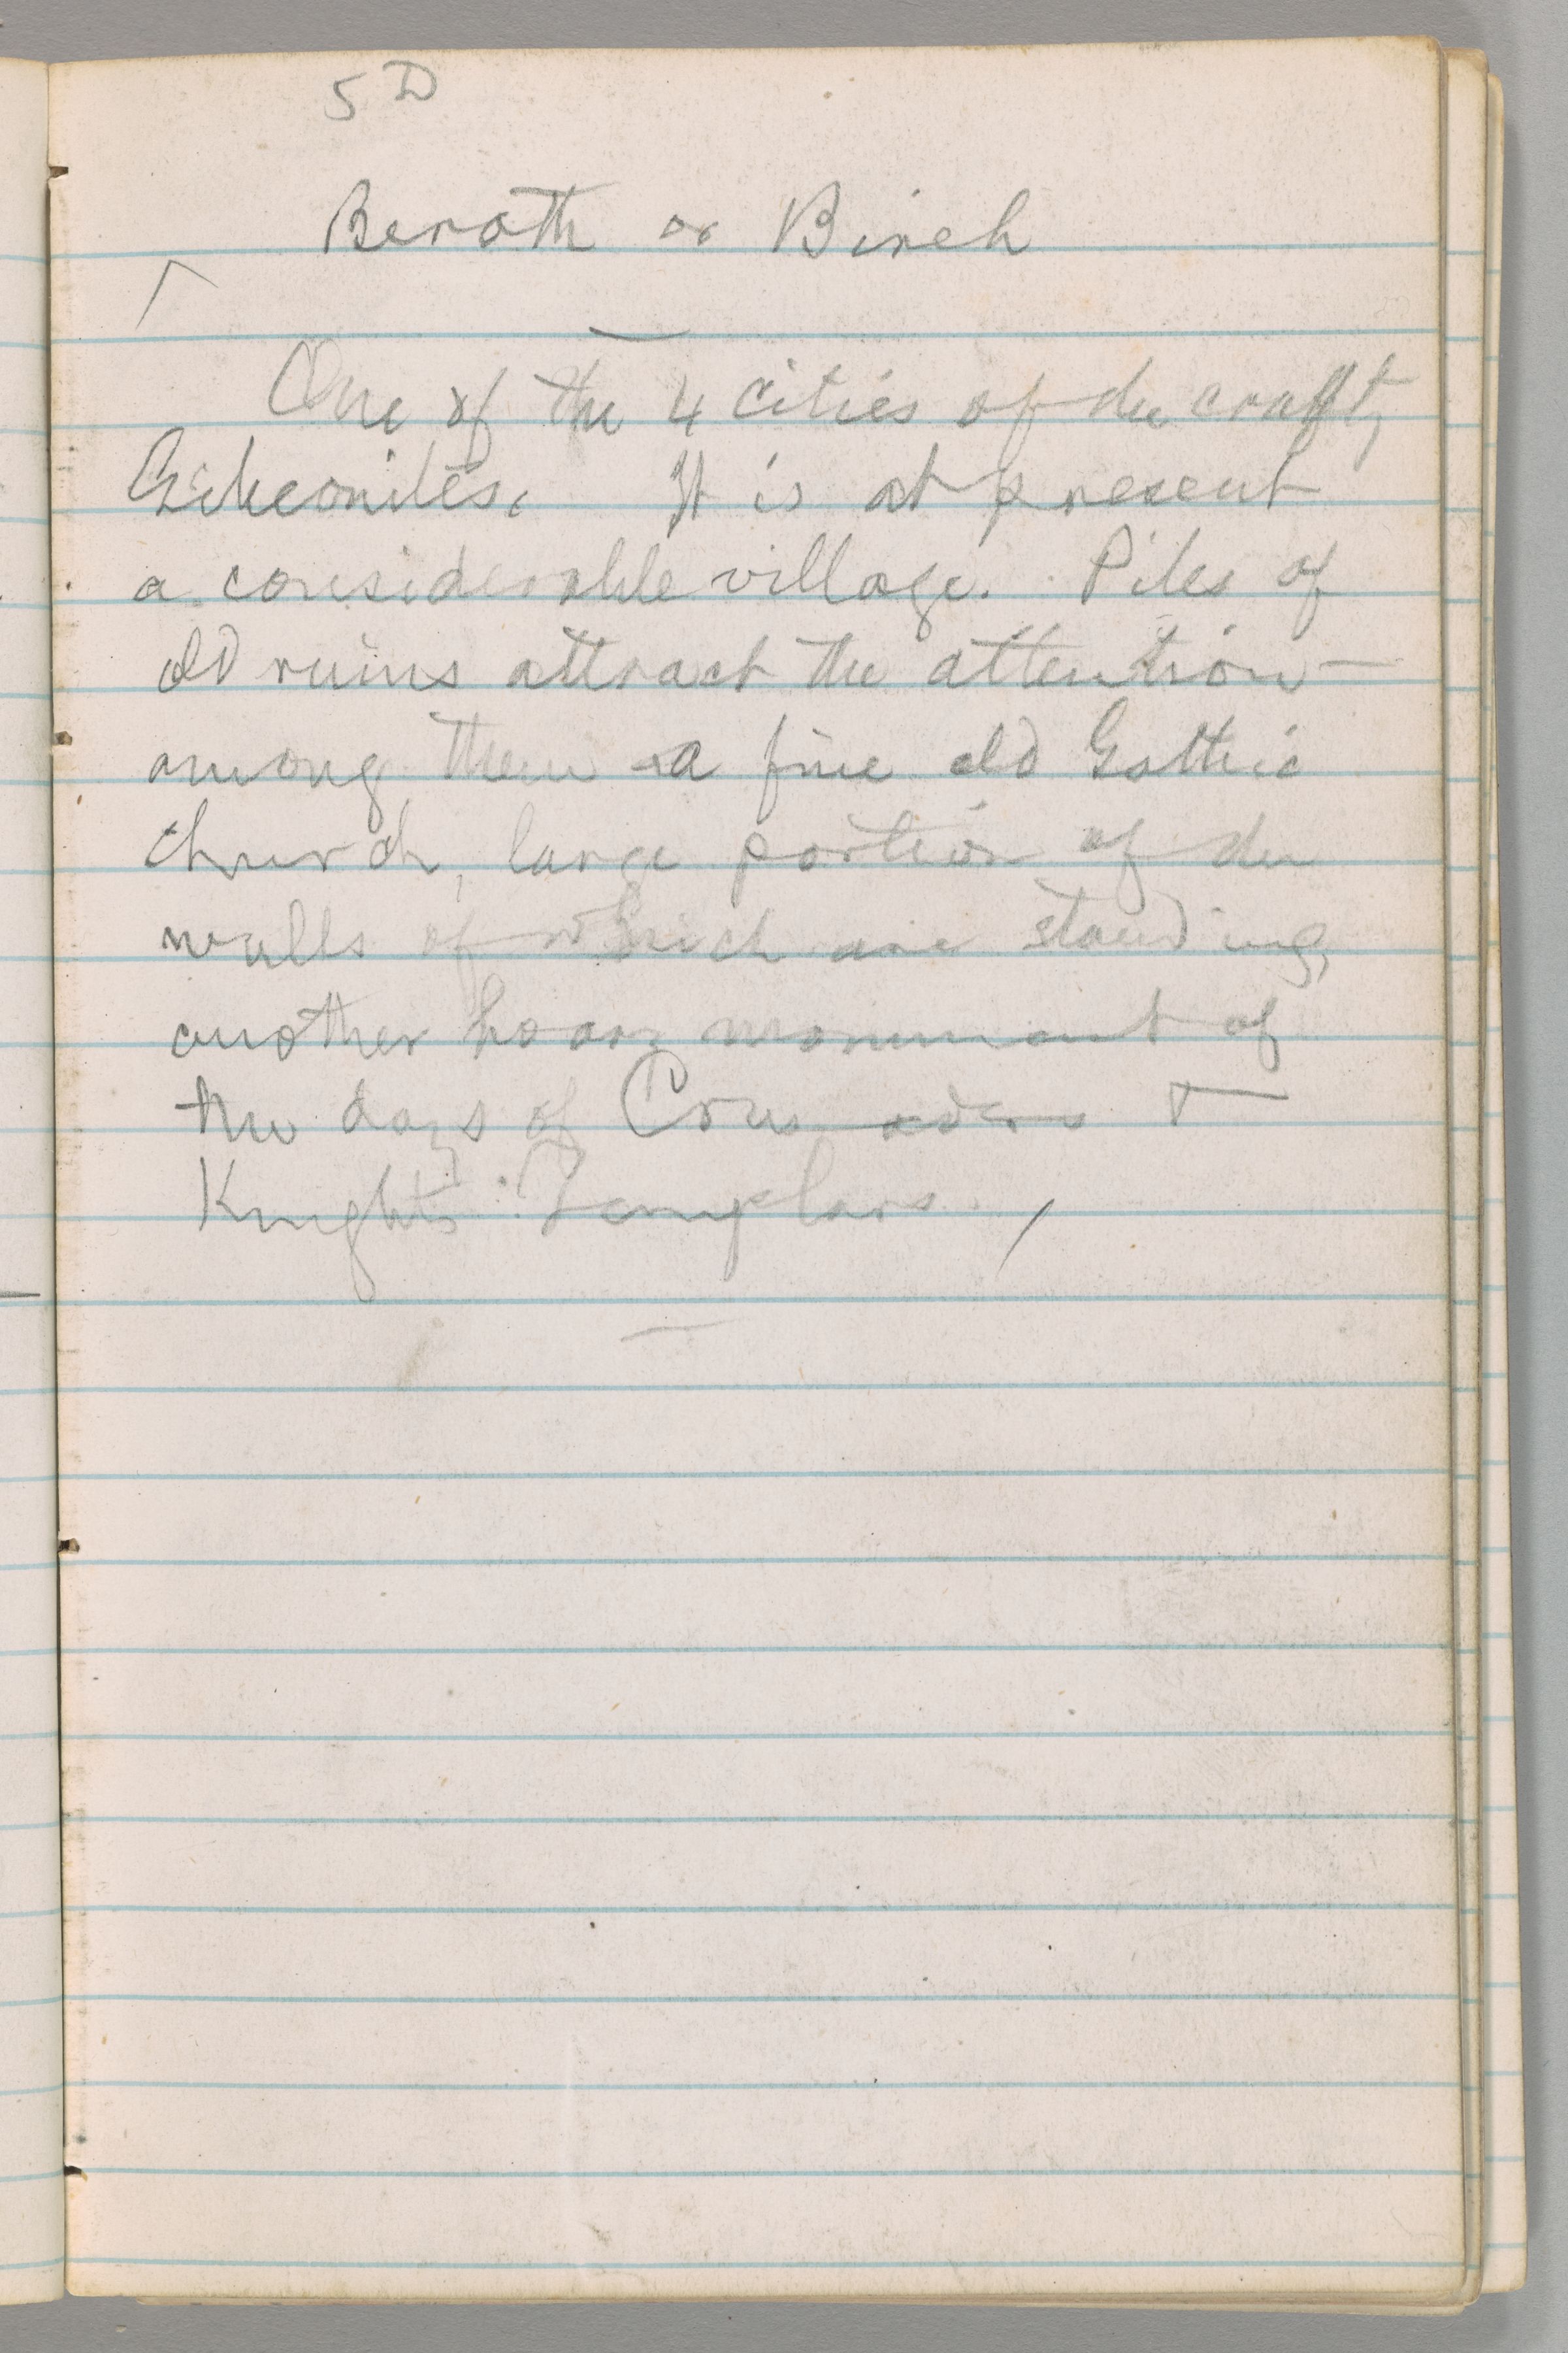 5D
Beroth or Bireh
One of the 4 cities of the crafty
Gibeonites. It is at present
a considerable village. Piles of
old ruins attract the attention —
among them a fine old Gothic
church, large portion of the
walls of which are standing,
another hoary monument of
the days of Crusaders &
Knights Templars.